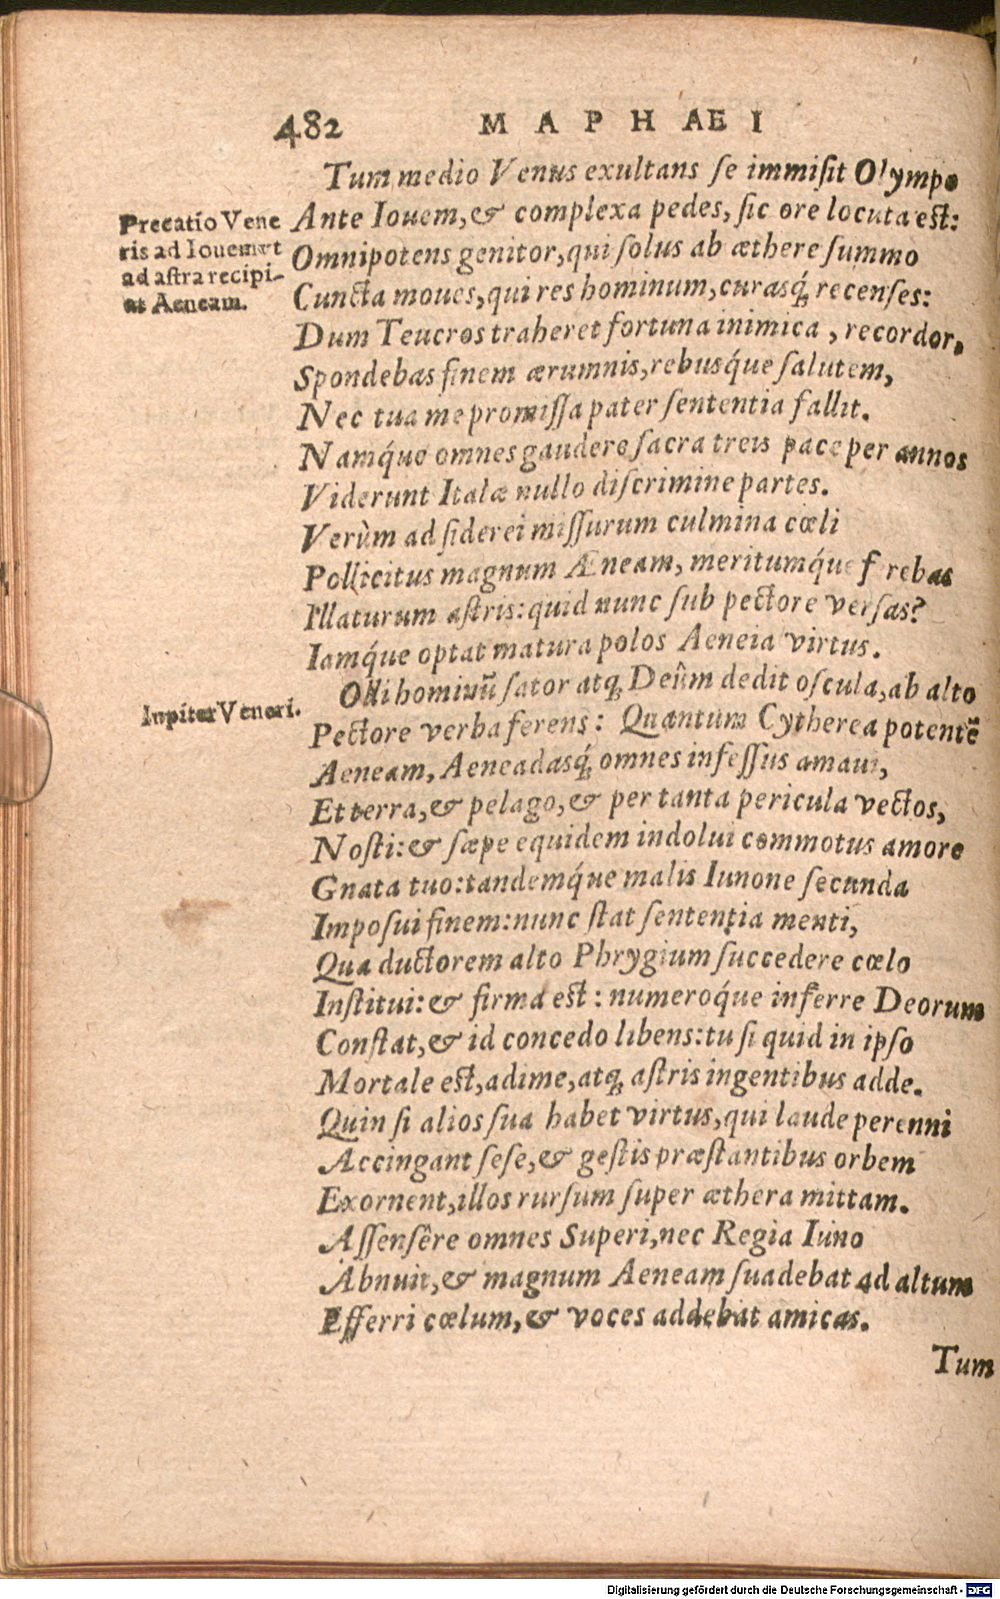 482 MAPHAEI
Tum medio Venus exultans se immisit Olympo
Precatio Vene
ris ad Iouem vt
ad astra recipi-
at Aeneam.
Ante Iouem, & complexa pedes, sic ore locuta est:
Omnipotens genitor, qui solus ab æthere summo
Cuncta moues, qui res hominum, curasq́; recenses:
Dum Teucros traheret fortuna inimica, recordor,
Spondebas finem ærumnis, rebusq́ue salutem,
Nec tua me promissa pater sententia fallit.
Namq́ue omnes gaudere sacra treis pace per annos
Viderunt Italæ nullo discrimine partes.
Verùm ad siderei missurum culmina cœli
Pollicitus magnum Æneam, meritumq́ue f rebas
Illaturum astris: quid nunc sub pectore versas?
Iamq́ue optat matura polos Aeneia virtus.
Iupiter Veneri.
Olli hominū sator atq; Deûm dedit oscula, ab alto
Pectore verba ferens: Quantum Cytherea potentē
Aeneam, Aeneadasq́; omnes infessus amaui,
Et terra, & pelago, & per tanta pericula vectos,
Nosti: & sæpe equidem indolui commotus amore
Gnata tuo: tandemq́ue malis Iunone secunda
Imposui finem: nunc stat sententia menti,
Qua ductorem alto Phrygium succedere cœlo
Institui: & firma est: numeroq́ue inferre Deorum
Constat, & id concedo libens: tu si quid in ipso
Mortale est, adime, atq; astris ingentibus adde.
Quin si alios sua habet virtus, qui laude perenni
Accingant sese, & gestis præstantibus orbem
Exornent, illos rursum super æthera mittam.
Assensêre omnes Superi, nec Regia Iuno
Abnuit, & magnum Aeneam suadebat ad altum
Efferri cœlum, & voces addebat amicas.
Tum
Digitalisierung gefördert durch die Deutsche Forschungsgemeinschaft - DFG